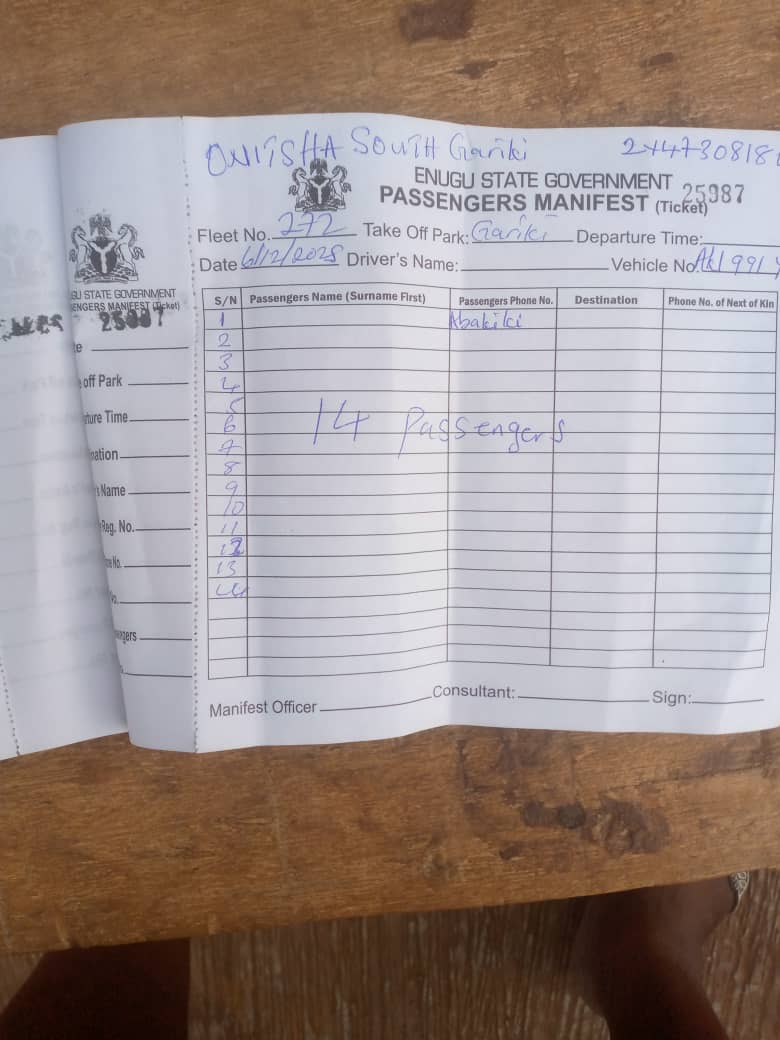 ONITSHA SOUTH Gariki 2447308181
ENUGU STATE GOVERNMENT
PASSENGERS MANIFEST (Ticket)
25987
Fleet No. 272 Take Off Park: Gariki Departure Time:
Date 6/12/2025 Driver's Name: Vehicle No.
S/N Passengers Name (Surname First) Passengers Phone No. Destination Phone No. of Next of Kin
1 Abakiliki
2
3
4
5
6
14 Passengers
7
8
9
10
11
12
13
14
Manifest Officer Consultant: Sign:
GU STATE GOVERNMENT
ENGERS MANIFEST (Ticket)
25987
te
off Park
rture Time
nation
's Name
Reg. No.
ne No.
No.
ngers